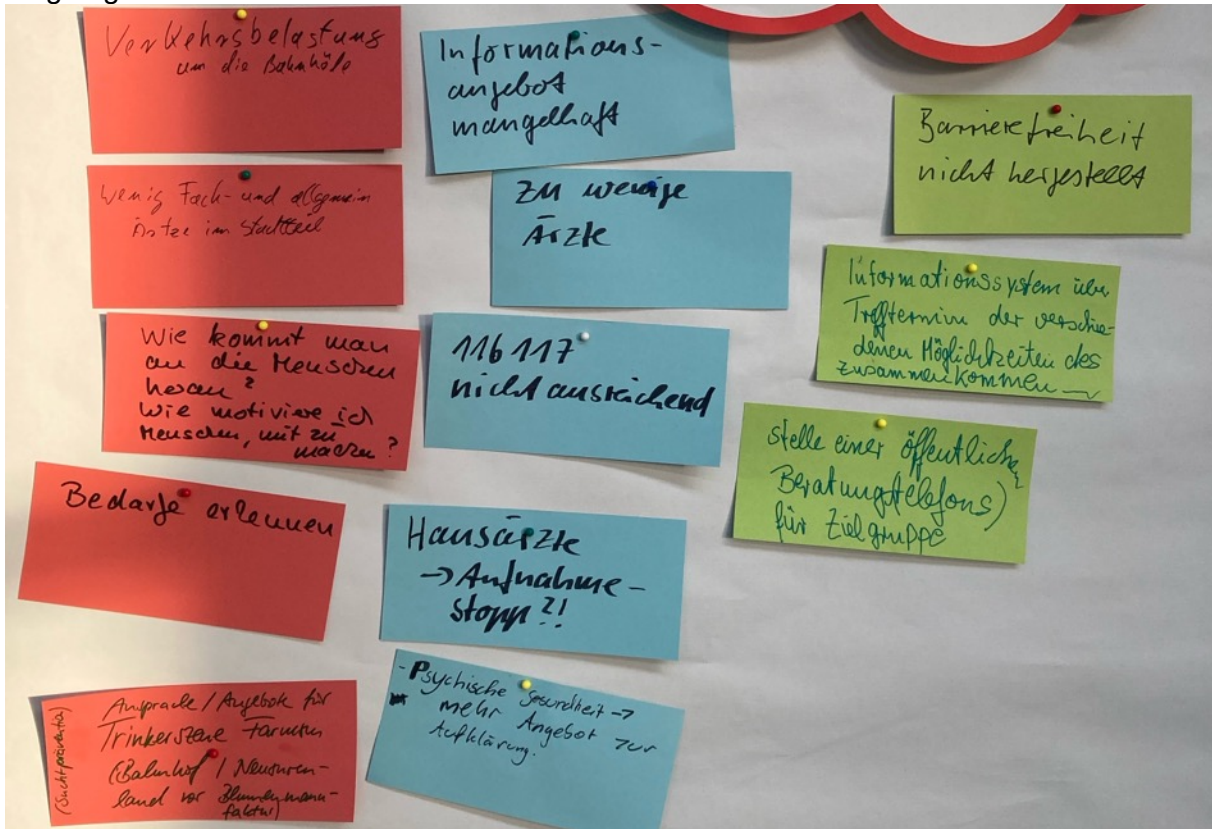 Verkehrsbelastung
um die Bahnhöfe
Wenig Fach- und allgemein
Ärzte im Stadtteil
Wie kommt man
an die Menschen
heran?
Wie motiviere ich
Menschen, mit zu
machen?
Bedarfe erkennen
(Suchtprävention)
Ansprache / Angebote für
Trinkerszene Farmsen
(Bahnhof / Neusuren-
land vor Blumenmanu-
faktur)
Informations-
angebot
mangelhaft
Zu wenige
Ärzte
116 117
nicht ausreichend
Hausärzte
-> Aufnahme-
stopp?!
- Psychische Gesundheit ->
mehr Angebot zur
Aufklärung.
Barrierefreiheit
nicht hergestellt
Informationssystem über
Trefftermine der verschie-
denen Möglichkeiten des
zusammenkommen
stelle einer öffentlichen
Beratung(telefons)
für Zielgruppe